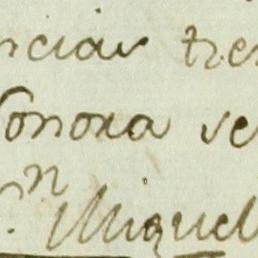 ncias tre
Sonora se
n. Miguel